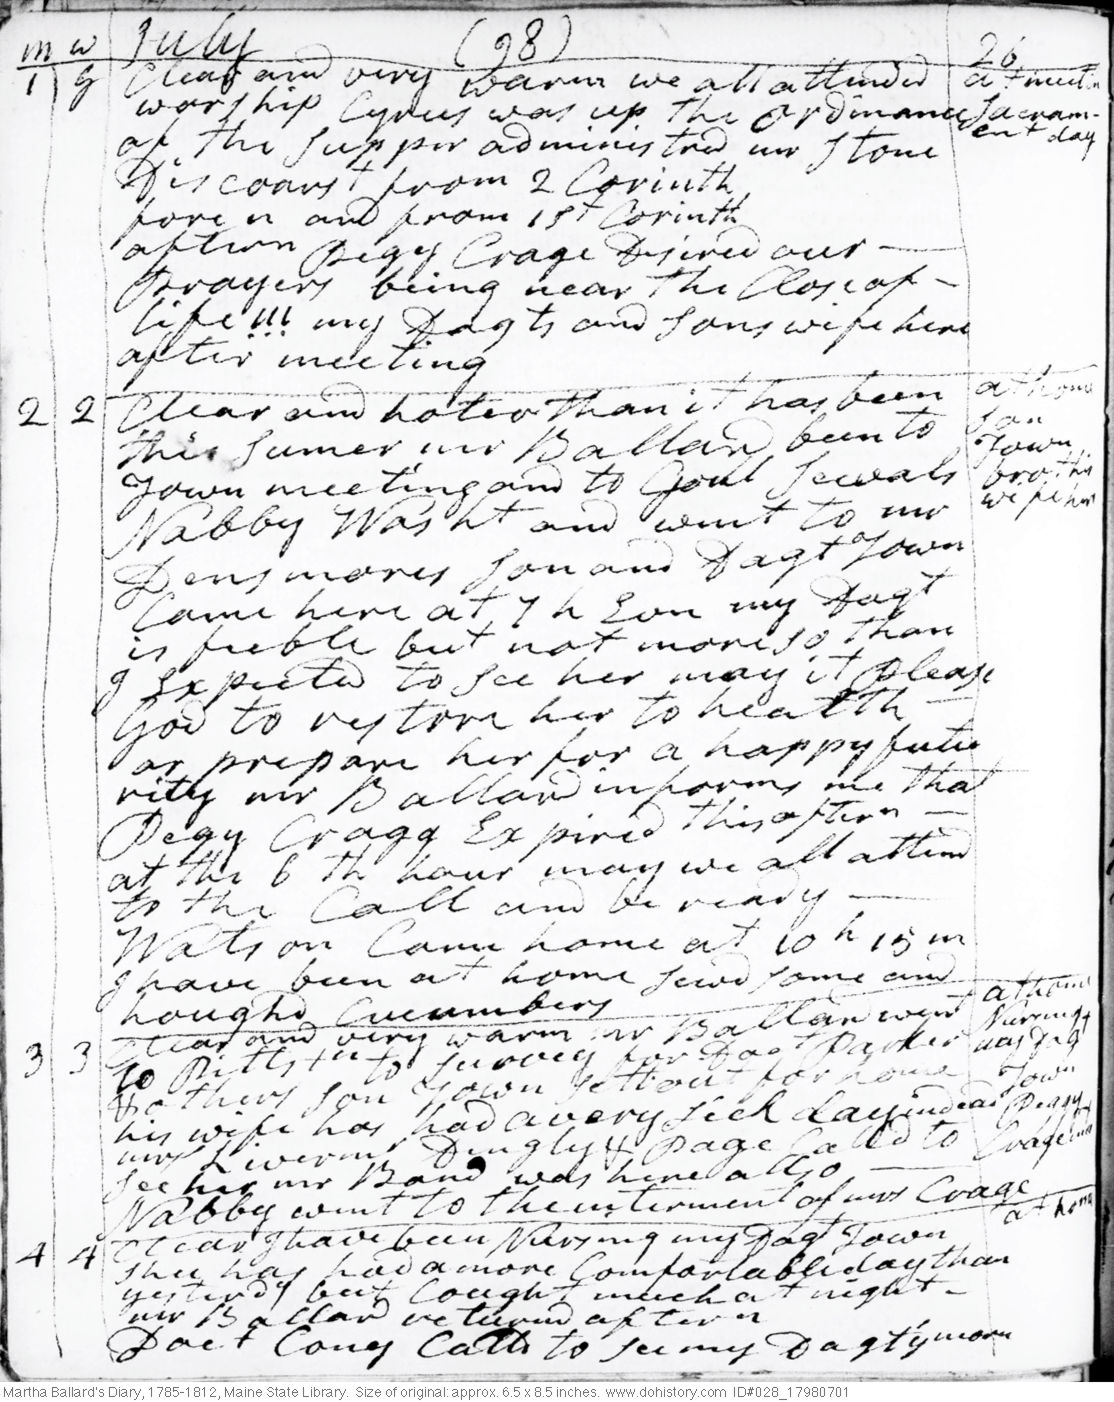 m w July (98) 26
1 G Clear and very warm we all attended at meetin
worship Cyrus was up the Ordinance Sacram-
of the Supper administred mr Stone ent day
Discoarst from 2 Corinth
foren and from 1st Corinth
aftern Pegy Crage Desired our —
Prayers being near the Close of -
life !!! my Dagts and Sons wife here
after meeting
2 2 Clear and hoter than it has been at home
this Sumer mr Ballard been to Son
Town meeting and to Coul Sewals Town
Nabby Washt and went to mr brothr
Densmores Son and Dagt Town wife here
Came here at 7 h Evn my Dagt
is feeble but not more so than
I Expected to See her may it please
God to restore her to health —
or prepare her for a happy futu
rity mr Ballard informs me that
Pegy Cragg Expired this aftern —
at the 6 th hour may we all attend
to the Call and be ready —
Watson Came home at 10 h 15 m
I have been at home Sewd some and
houghd Cucumbers at home
3 3 Clear and very warm mr Ballard went Nursing
to Pittstn to Survey for Doct Parker my Dag
& others Son Town Sett out for home Town
his wife has had a very sick day indead Peggy
mrs Livermore Dingly & Page Calld to Crage
See her mr Band was here allso —
Nabby went to the interment of mrs Crage
4 4 Clear I have been Nursing my Dagt Town at home
shee has had a more Comfortable day than
yesterdy but Cought much at night -
mr Ballard returnd aftern
Doct Cony Calld to see my Dagt ys morn
Martha Ballard's Diary, 1785-1812, Maine State Library. Size of original: approx. 6.5 x 8.5 inches. www.dohistory.com ID#028_17980701